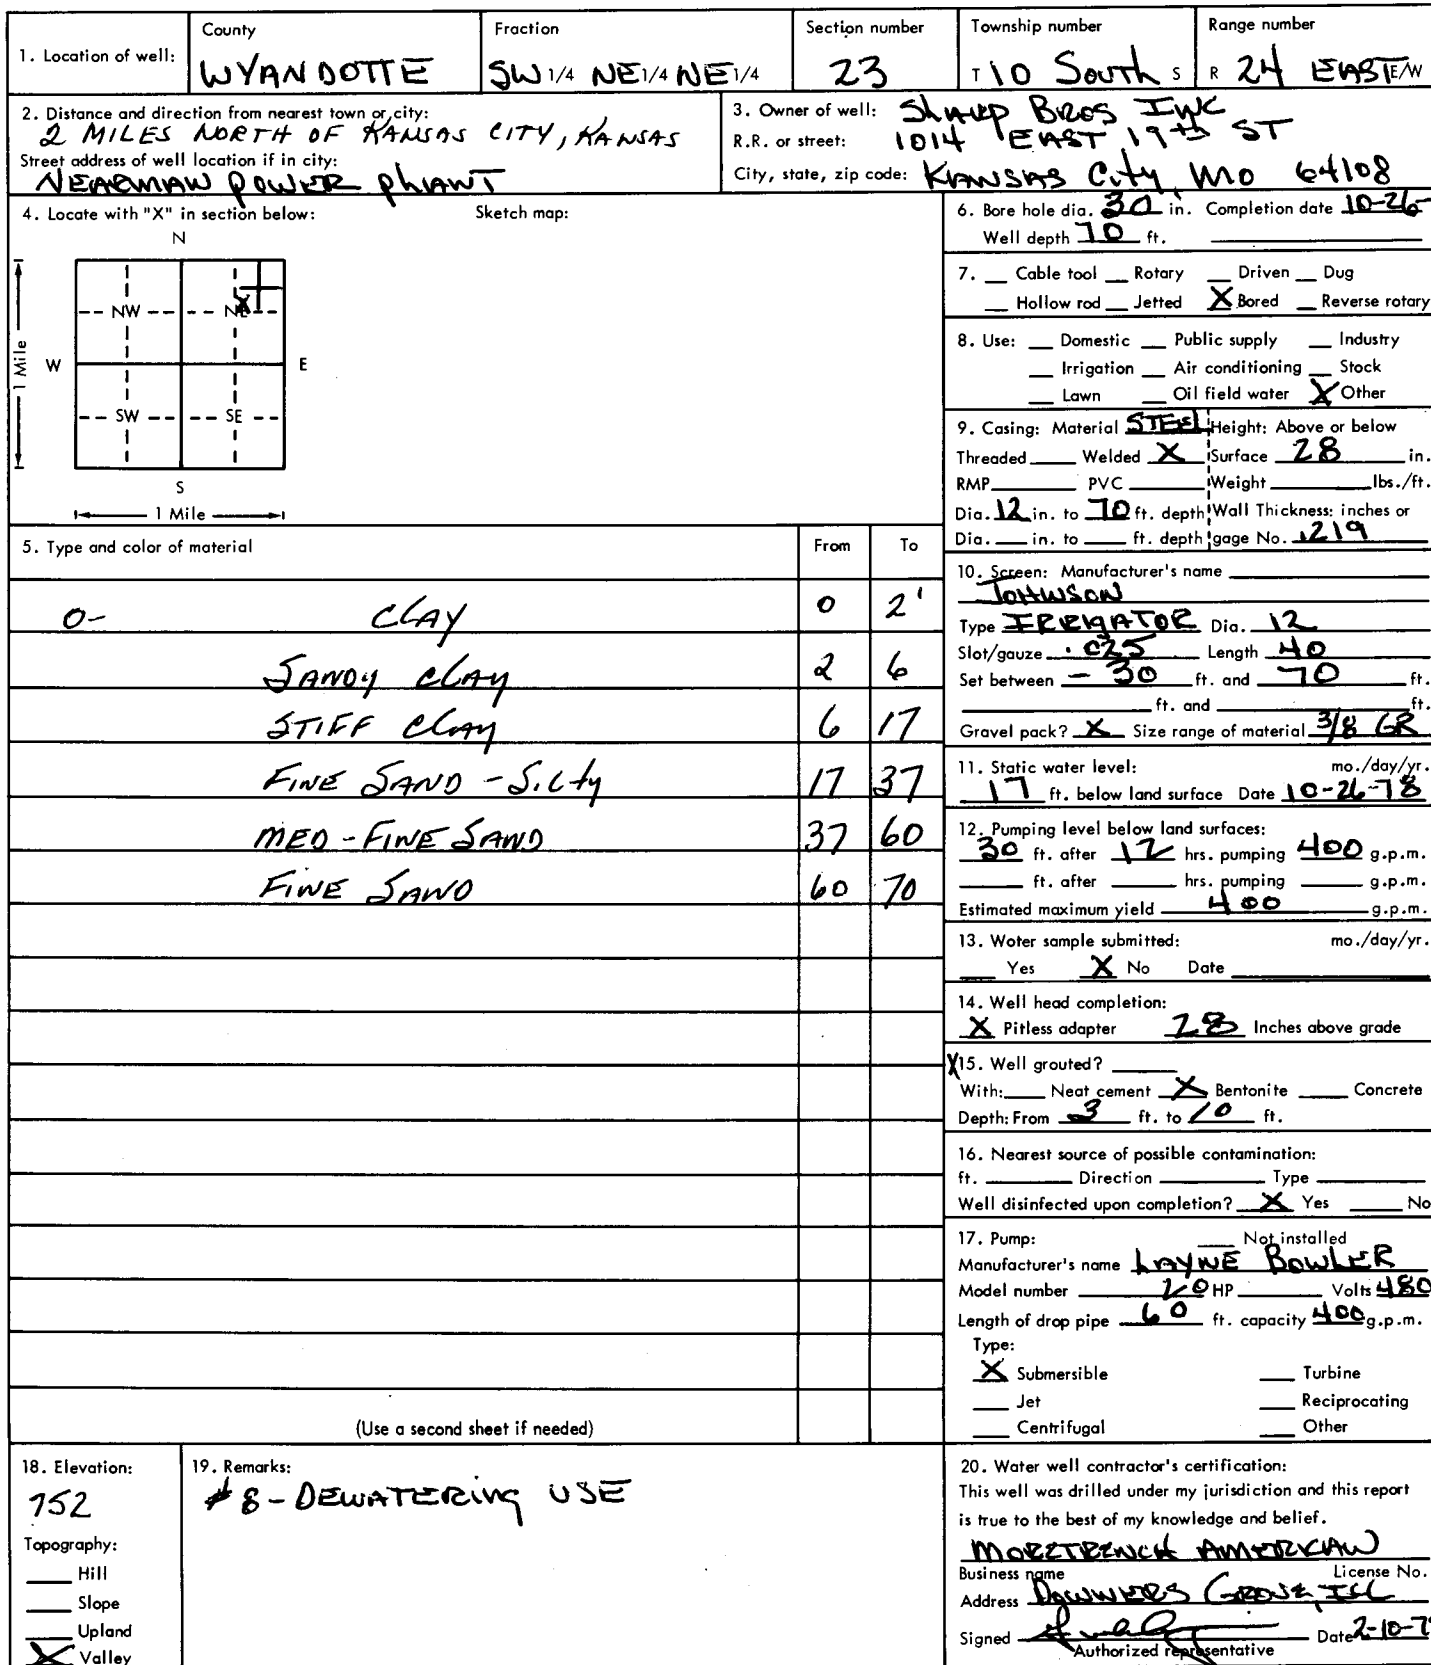 1. Location of well: County WYANDOTTE Fraction SW 1/4 NE 1/4 NE 1/4 Section number 23 Township number T 10 South S Range number R 24 EAST E/W
2. Distance and direction from nearest town or city:
2 MILES NORTH OF KANSAS CITY, KANSAS
Street address of well location if in city:
NEARMAN POWER PLANT
3. Owner of well: Sharp Bros Inc
R.R. or street: 1014 EAST 19th ST
City, state, zip code: KANSAS City, MO 64108
4. Locate with "X" in section below: Sketch map:
N
NW X NE
W E
1 Mile
SW SE
S
1 Mile
5. Type and color of material From To
0- CLAY 0 2'
SANDY CLAY 2 6
STIFF CLAY 6 17
FINE SAND - Silty 17 37
MED - FINE SAND 37 60
FINE SAND 60 70
(Use a second sheet if needed)
6. Bore hole dia. 30 in. Completion date 10-26-
Well depth 70 ft.
7. Cable tool Rotary Driven Dug
Hollow rod Jetted X Bored Reverse rotary
8. Use: Domestic Public supply Industry
Irrigation Air conditioning Stock
Lawn Oil field water X Other
9. Casing: Material STEEL Height: Above or below
Threaded Welded X Surface 28 in.
RMP PVC Weight lbs./ft.
Dia. 12 in. to 70 ft. depth Wall Thickness: inches or
Dia. in. to ft. depth gage No. .219
10. Screen: Manufacturer's name
JOHNSON
Type IRRIGATOR Dia. 12
Slot/gauze .025 Length 40
Set between - 30 ft. and 70 ft.
ft. and ft.
Gravel pack? X Size range of material 3/8 GR
11. Static water level: mo./day/yr.
17 ft. below land surface Date 10-26-78
12. Pumping level below land surfaces:
30 ft. after 12 hrs. pumping 400 g.p.m.
ft. after hrs. pumping g.p.m.
Estimated maximum yield 400 g.p.m.
13. Water sample submitted: mo./day/yr.
Yes X No Date
14. Well head completion:
X Pitless adapter 28 Inches above grade
X 15. Well grouted?
With: Neat cement X Bentonite Concrete
Depth: From 3 ft. to 10 ft.
16. Nearest source of possible contamination:
ft. Direction Type
Well disinfected upon completion? X Yes No
17. Pump: Not installed
Manufacturer's name LAYNE BOWLER
Model number 20 HP Volts 480
Length of drop pipe 60 ft. capacity 400 g.p.m.
Type:
X Submersible Turbine
Jet Reciprocating
Centrifugal Other
18. Elevation:
752
Topography:
Hill
Slope
Upland
X Valley
19. Remarks:
#8 - DEWATERING USE
20. Water well contractor's certification:
This well was drilled under my jurisdiction and this report
is true to the best of my knowledge and belief.
MORETRENCH AMERICAN
Business name License No.
Address DOWNERS GROVE, ILL
Signed Date 2-10-7
Authorized representative